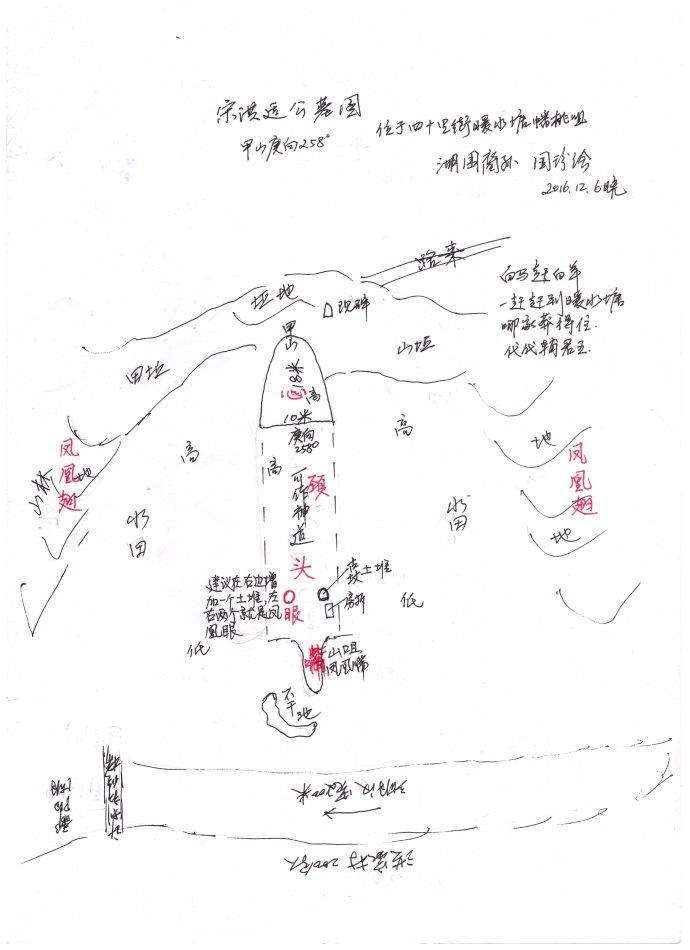 宗洪运公墓图
甲山庚向258°
位于四十里街暖水塘蟠桃咀
湖围裔孙 国珍绘
2016.12.6晚
路来
白马赶白羊
一赶赶到暖水塘
哪家葬得住
代代辅君王
坵地
现碑
甲山
田坵
山坵
18米
心
高
10米
庚向
258°
高
高
高
凤凰翅
地
山林
水田
可作神道
颈
水田
地
凤凰翅
地
头
建议在右边增
加一个土堆,左
右两个就是凤
凰眼
眼
土堆
低
低
嘴
山咀
凤凰嘴
不平地